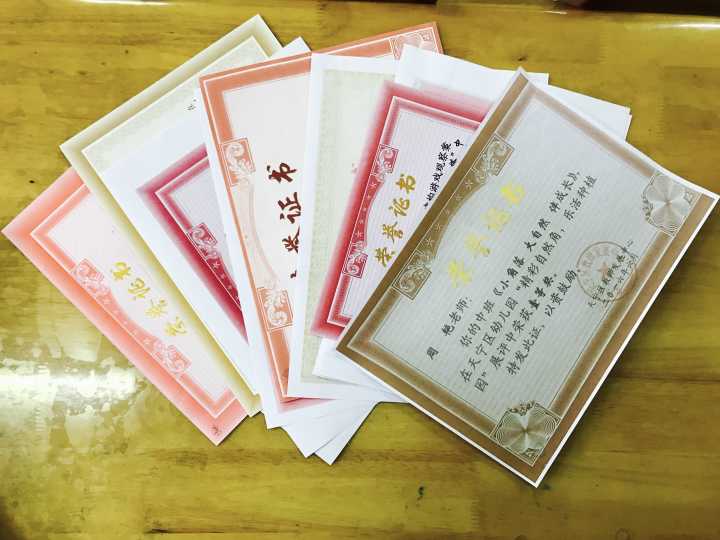 荣誉证书
证书
荣誉证书
游戏观察案
”中
荣誉证书
周 艳老师：
你的中班《小角落 大自然 伴成长》
在天宁区幼儿园“精彩自然角，乐活种植
园”展评中荣获壹等奖。
特发此证，以资鼓励